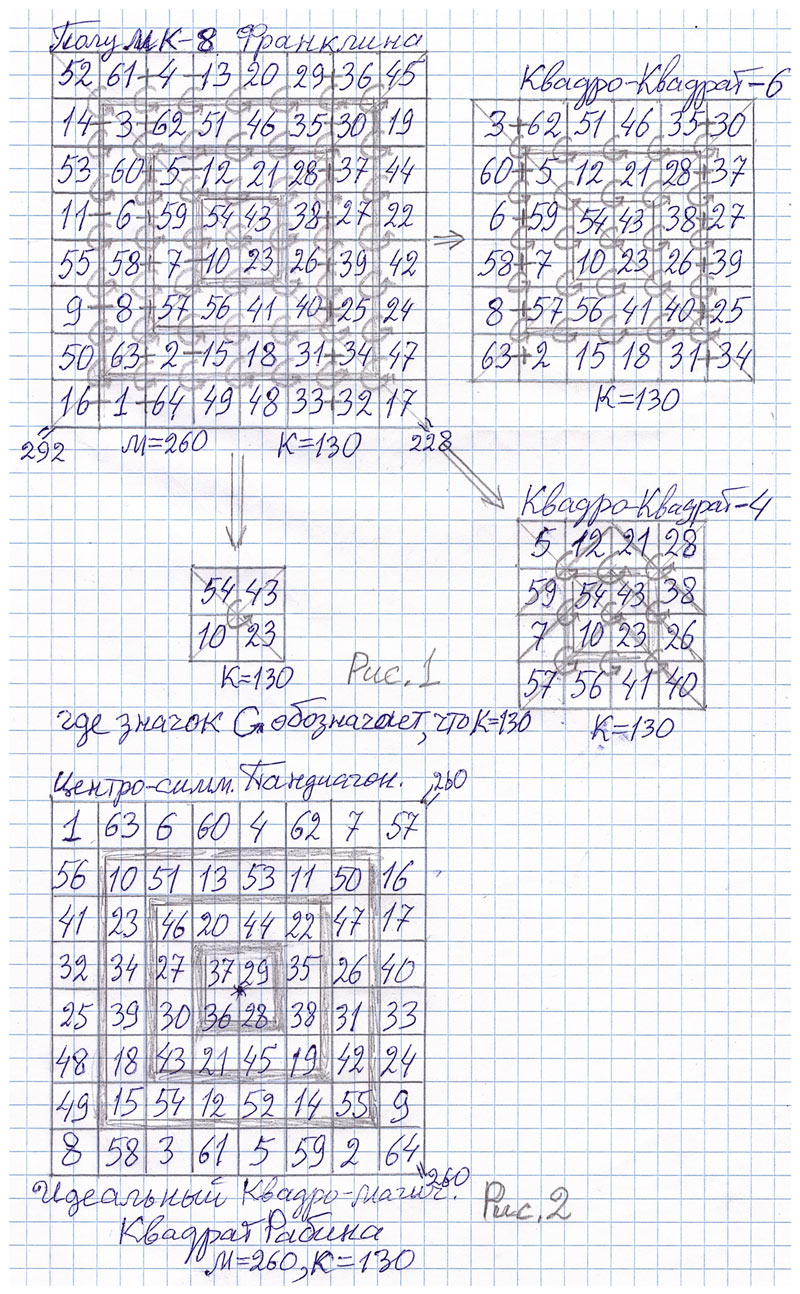 Полу МК-8 Франклина
52 61 4 13 20 29 36 45
14 3 62 51 46 35 30 19
53 60 5 12 21 28 37 44
11 6 59 54 43 38 27 22
55 58 7 10 23 26 39 42
9 8 57 56 41 40 25 24
50 63 2 15 18 31 34 47
16 1 64 49 48 33 32 17
292 М=260 К=130 228
Квадро-Квадрат-6
3 62 51 46 35 30
60 5 12 21 28 37
6 59 54 43 38 27
58 7 10 23 26 39
8 57 56 41 40 25
63 2 15 18 31 34
К=130
54 43
10 23
К=130
Рис. 1
Квадро-Квадрат-4
5 12 21 28
59 54 43 38
7 10 23 26
57 56 41 40
К=130
где значок G обозначает, что К=130
Центро-симм. Пандиагон. 260
1 63 6 60 4 62 7 57
56 10 51 13 53 11 50 16
41 23 46 20 44 22 47 17
32 34 27 37 29 35 26 40
25 39 30 36 28 38 31 33
48 18 43 21 45 19 42 24
49 15 54 12 52 14 55 9
8 58 3 61 5 59 2 64
260
Идеальный Квадро-магич.
Квадрат Рабина
М=260, К=130
Рис. 2